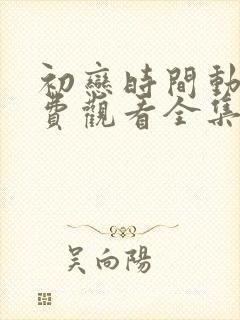 初戀時間動
費觀看全集
吳向陽